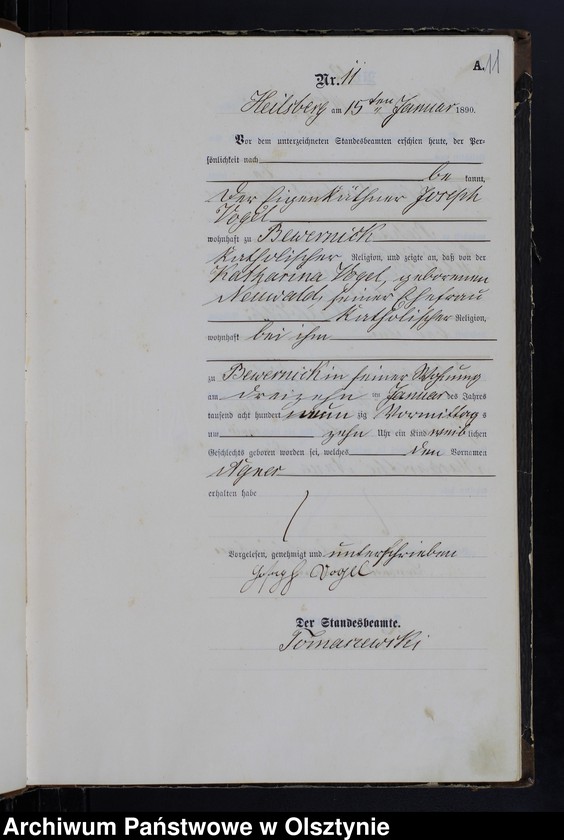 A. 11
Nr. 11
Heilsberg am 15ten Januar 1890.
Vor dem unterzeichneten Standesbeamten erschien heute, der Per-
sönlichkeit nach
be kannt,
der Eigenkäthner Joseph
Vogel
wohnhaft zu Bewernick
katholischer Religion, und zeigte an, daß von der
Katharina Vogel, geborenen
Neuwald, seiner Ehefrau
katholischer Religion,
wohnhaft bei ihm
zu Bewernick in seiner Wohnung
am dreizehn ten Januar des Jahres
tausend acht hundert neun zig Vormittag s
um zehn Uhr ein Kind weib lichen
Geschlechts geboren worden sei, welches den Vornamen
Agnes
erhalten habe
Vorgelesen, genehmigt und unterschrieben
Joseph Vogel
Der Standesbeamte.
Tomaszewski
Archiwum Państwowe w Olsztynie